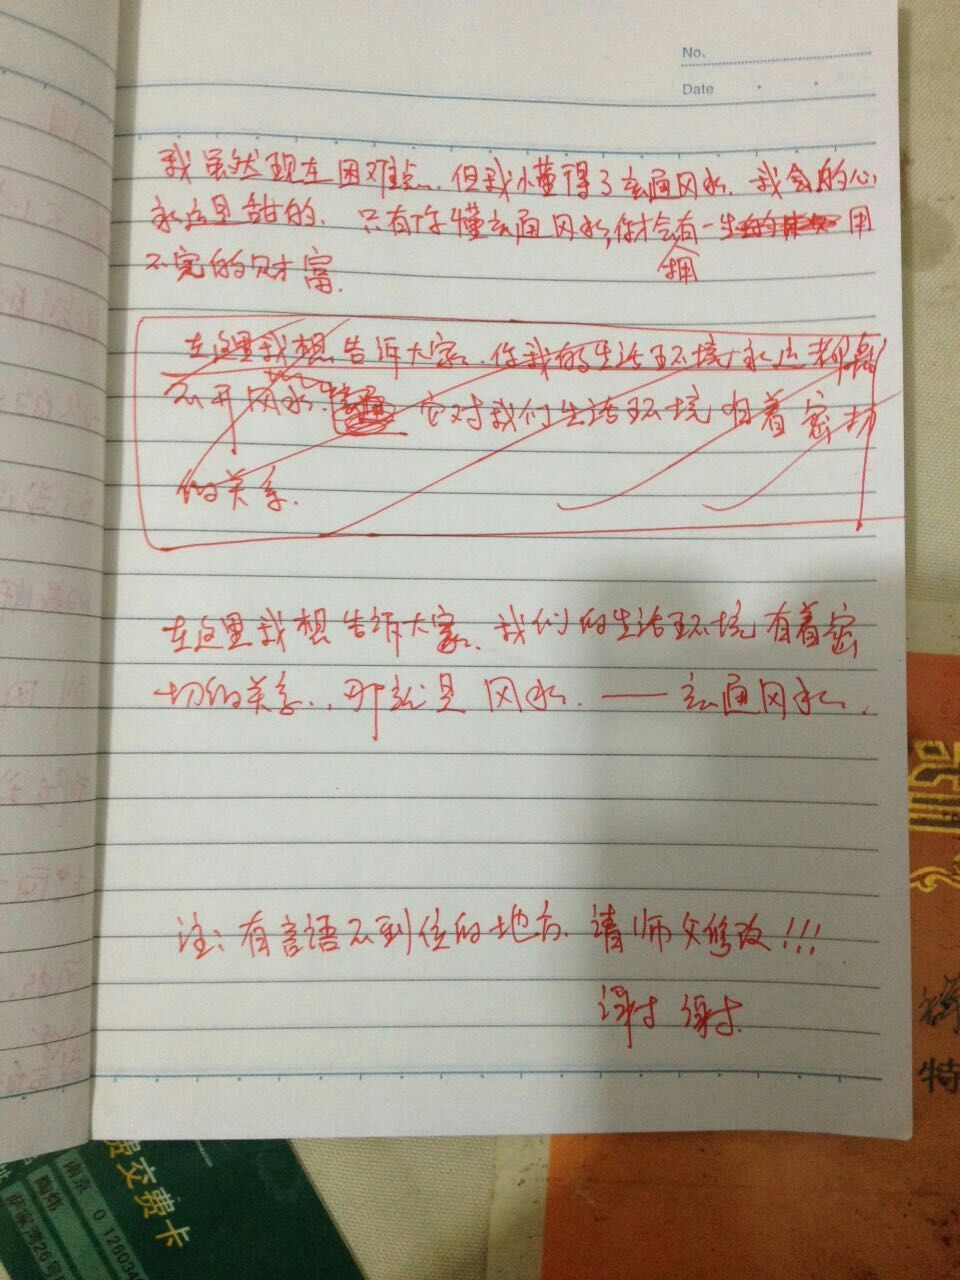 No.
Date
我虽然现在困难点.但我懂得了玄通风水.我会的心
永远是甜的.只有你懂玄通风水,你才会有一生用
拥
不完的财富.
在这里我想告诉大家.你我的生活环境永远都离
不开风水.它对我们生活环境有着密切
的关系.
在这里我想告诉大家.我们的生活环境有着密
切的关系..那就是风水.——玄通风水.
注:有言語不到位的地方.请师父修改!!!
谢谢.
特
费交费卡
南京
0 12603